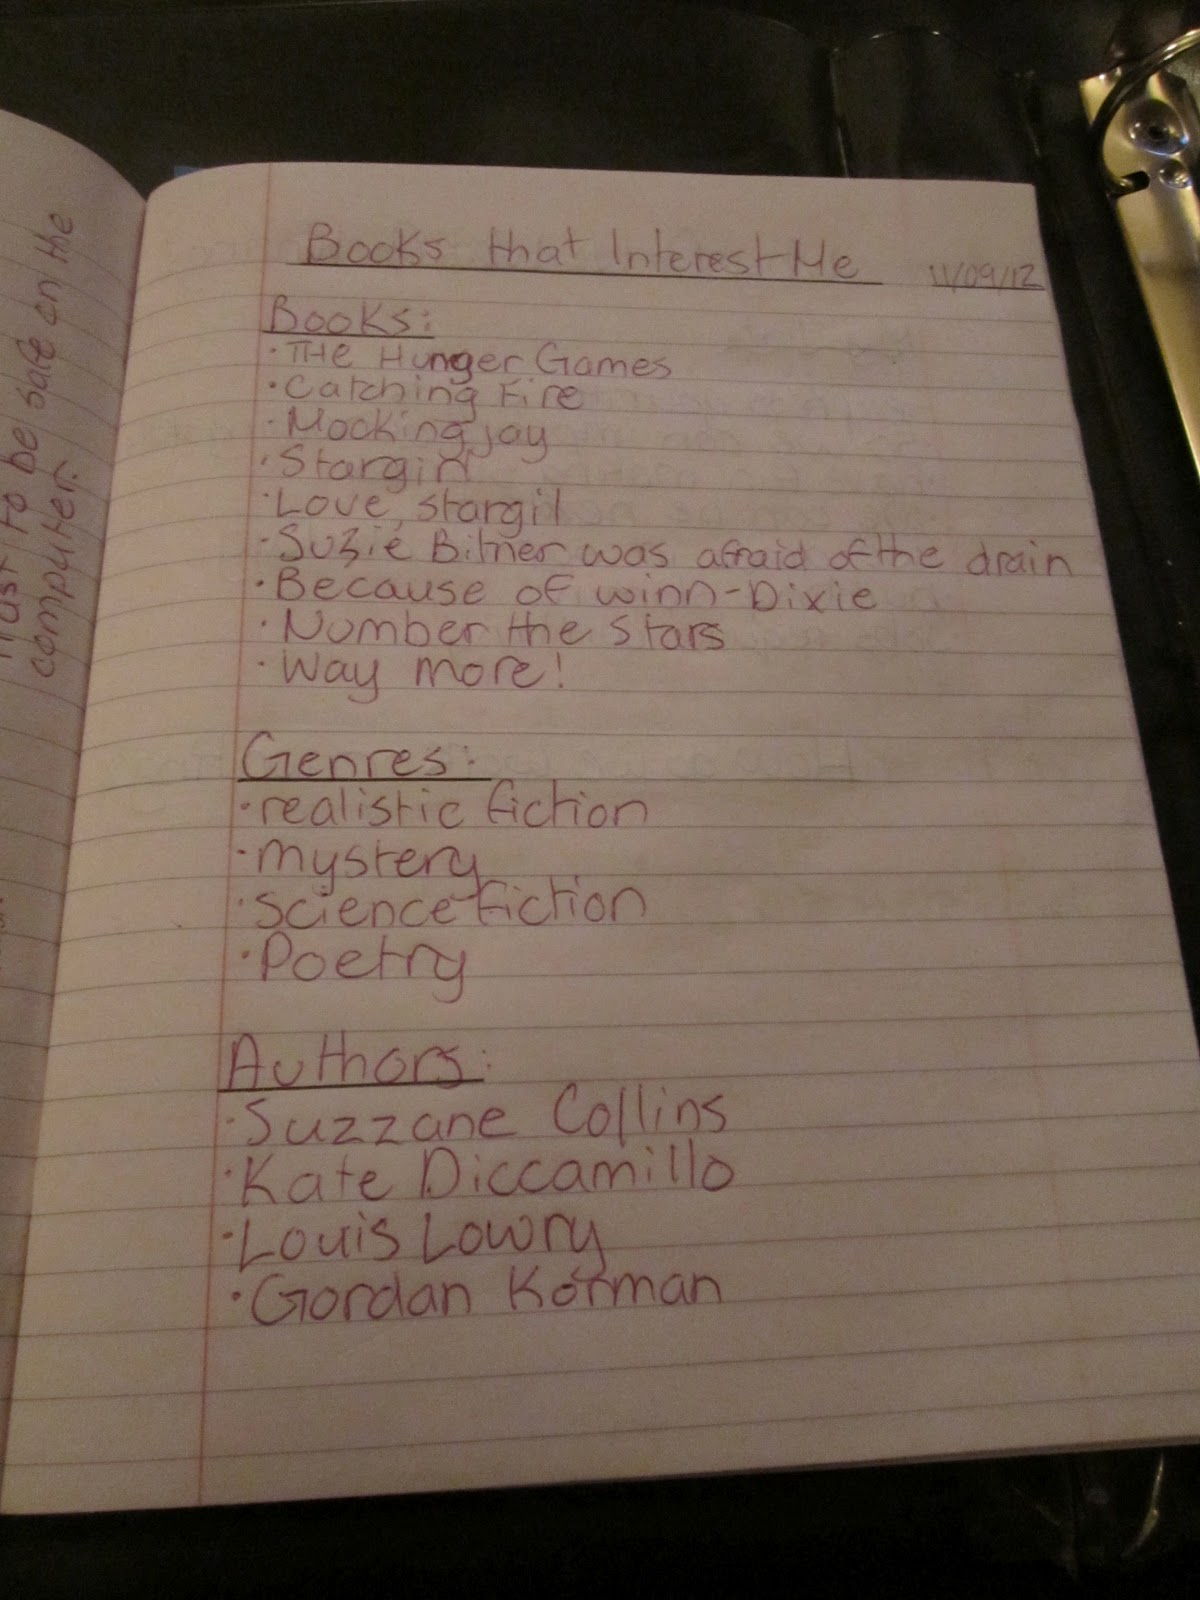 must to be safe on the
computer.
Books that Interest Me 11/09/12
Books:
·THe Hunger Games
·Catching Fire
·Mockingjay
·Stargirl
·Love, stargil
·Suzie Bitner was afraid of the drain
·Because of winn-Dixie
·Number the Stars
·Way more!
Genres:
·realistic fiction
·mystery
·science fiction
·Poetry
Authors:
·Suzzane Collins
·Kate Diccamillo
·Louis Lowry
·Gordan Korman